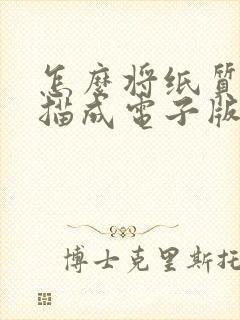 怎麼将纸質
描成電子版
博士克里斯托